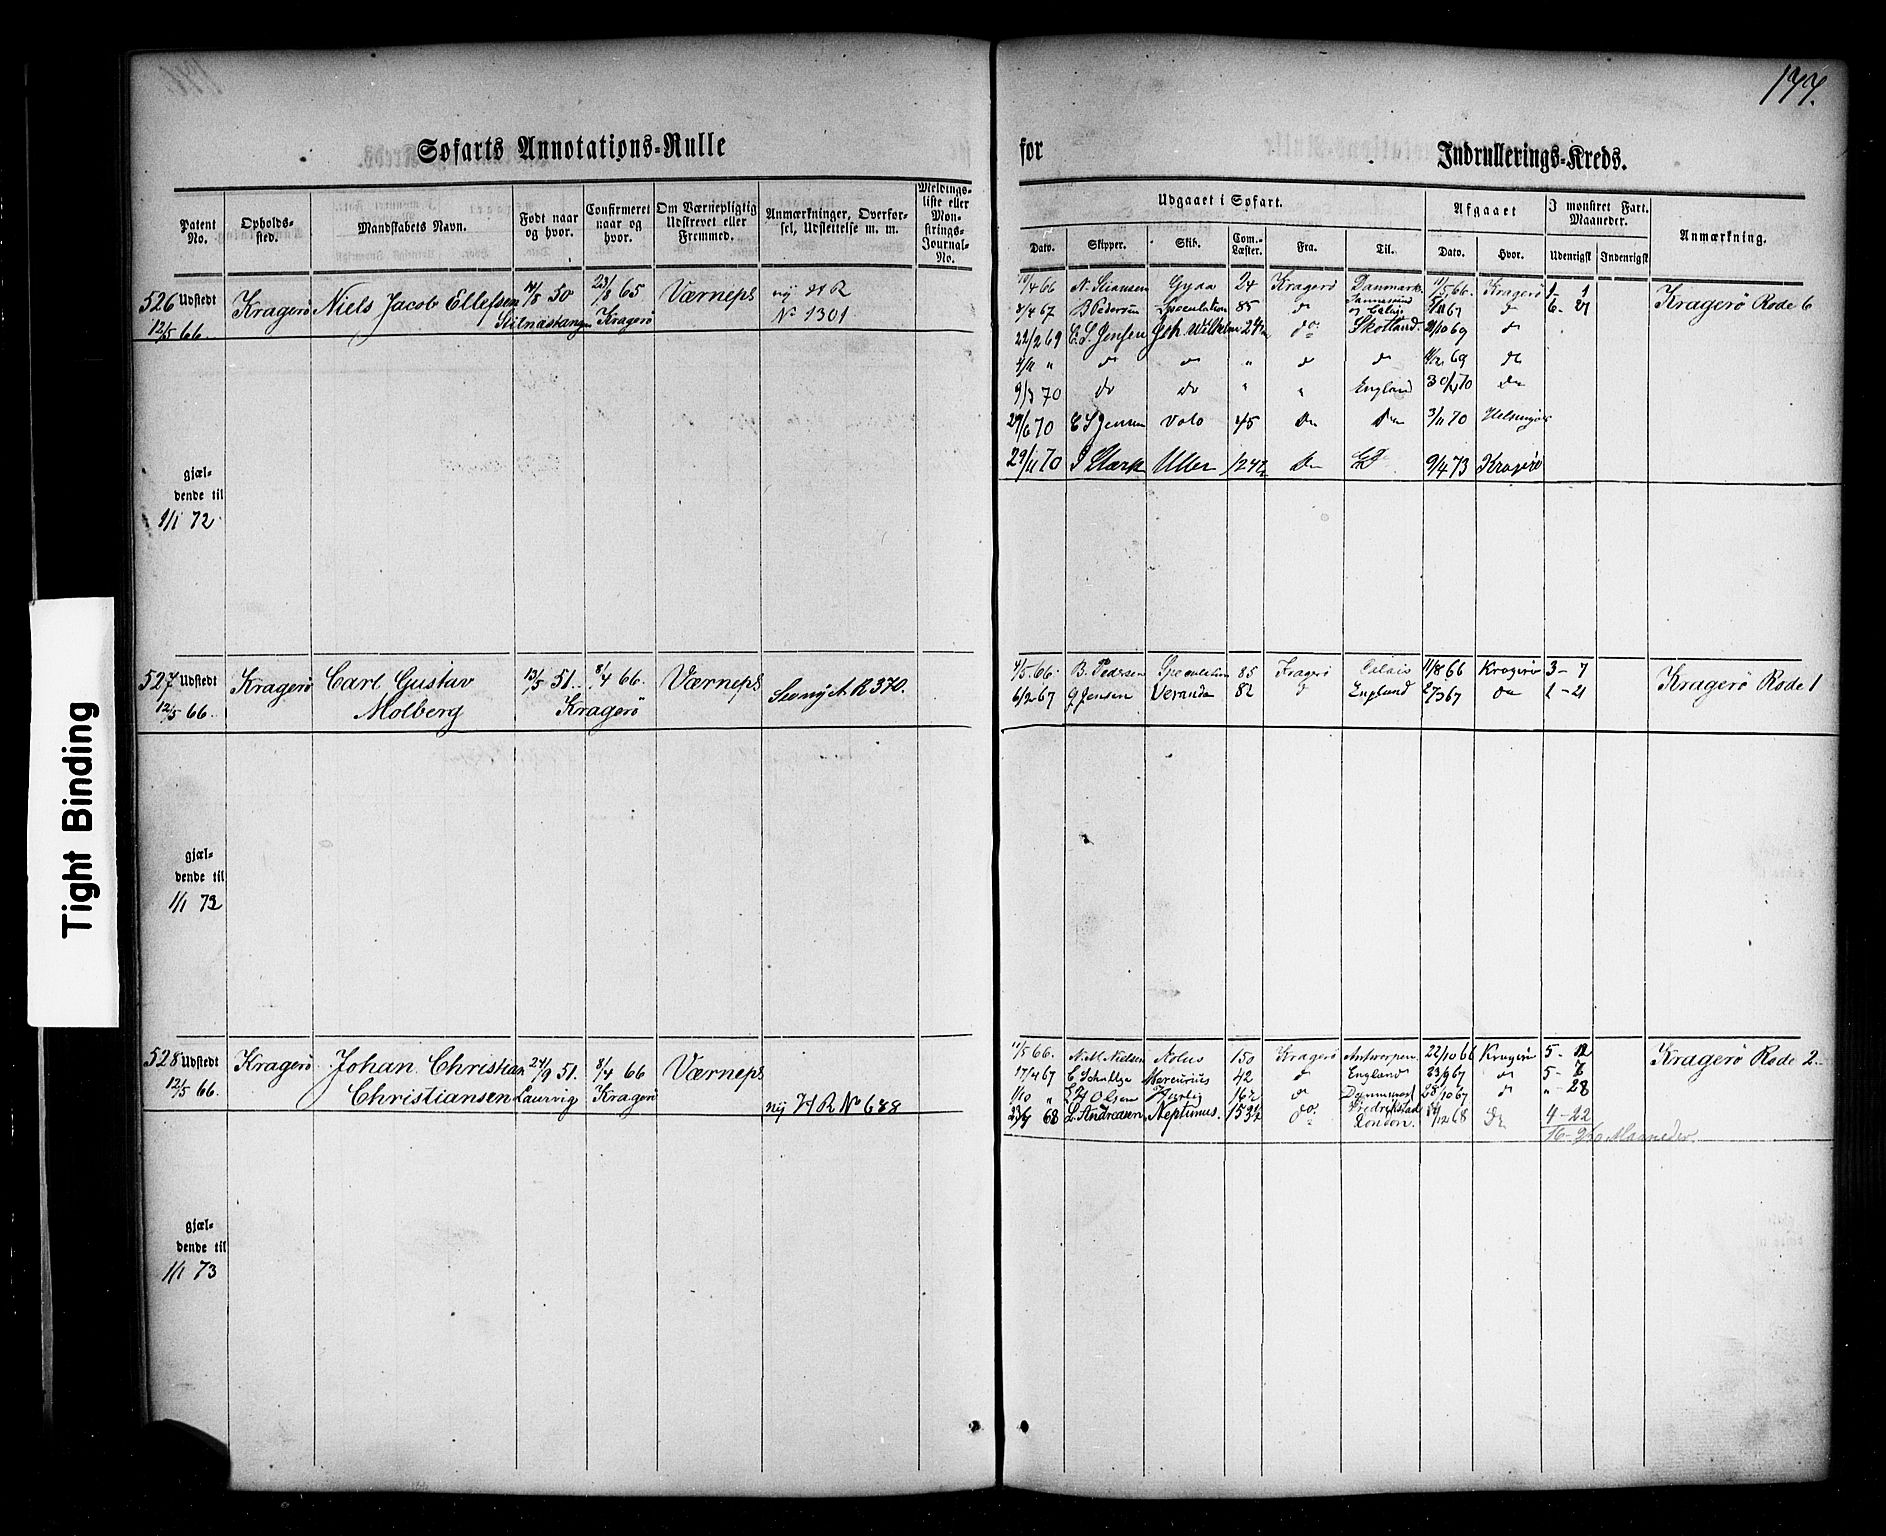 177.
Søfarts Annotations-Rulle for Indrullerings-Kreds.
Patent No. Opholds-sted. Mandskabets Navn. Født naar og hvor. Confirmeret naar og hvor. Om Værnepligtig Udskrevet eller Fremmed. Anmærkninger, Overfør-sel, Udslettelse m. m. Meldings-liste eller Mon-strings-Journal-No.
Udgaaet i Søfart. Afgaaet I monstret Fart. Maaneder. Anmærkning.
Dato. Skipper. Skib. Com.-Læster. Fra. Til. Dato. Hvor. Udenrigst Indenrigst
526 Udstedt Kragerø Niels Jacob Ellefsen 50 23/8 65 Værnepl ny H R
12/5 66. Stilnæstangen Kragerø No 1301
19/4 66 N. Gyda 24 Kragerø Danmark 11/5 66. Kragerø 1 1 Kragerø Rode 6
8/4 67 B Pedersen Speculation 85 do 67 do 6- 21
22/2 69 E. S. Jensen Joh. Wilhelm 24 do Skotland. 10 69 do
4/11 " do do " do do 69 do
9/3 70 do do " " England 30/4 70 do
29/6 70 E S Jensen Valo 45 do do 3/11 70 Helsingør
29/11 70 J Stærk Uller 124 do 9/4 73 Kragerø
gjæl-
dende til
1/1 72
527 Udstedt Kragerø Carl Gustav 13/5 51. 8/4 66. Værnepl Se ny A R 370.
12/5 66. Molberg Kragerø
4/5 66. B. Pedersen Speculation 85 Kragerø Calais 11/8 66 Kragerø 3- 7 Kragerø Rode 1
6/2 67 G Jensen Veranda 82 England 27/3 67 do 1- 21
gjæl-
dende til
1/1 72
528 Udstedt Kragerø Johan Christian 24/9 51. 8/4 66 Værnepl
12/5 66. Christiansen Laurvig Kragerø ny H R No 688
11/5 66. Nielsen Æolus 150 Kragerø Antwerpen 22/10 66 Kragerø 5- 12 Kragerø Rode 2.
17/4 67 E Schultze Mercurius 42 do England 23/9 67 do 5- 6
1/10 " E H Olsen 16 do Danmark 28/10 67 do " 28
68 L. Andreasen Neptunus. 153 do Fredrikstad London. 12 68 do 4-22
16- Maaneder.
gjæl-
dende til
1/1 73
Tight Binding